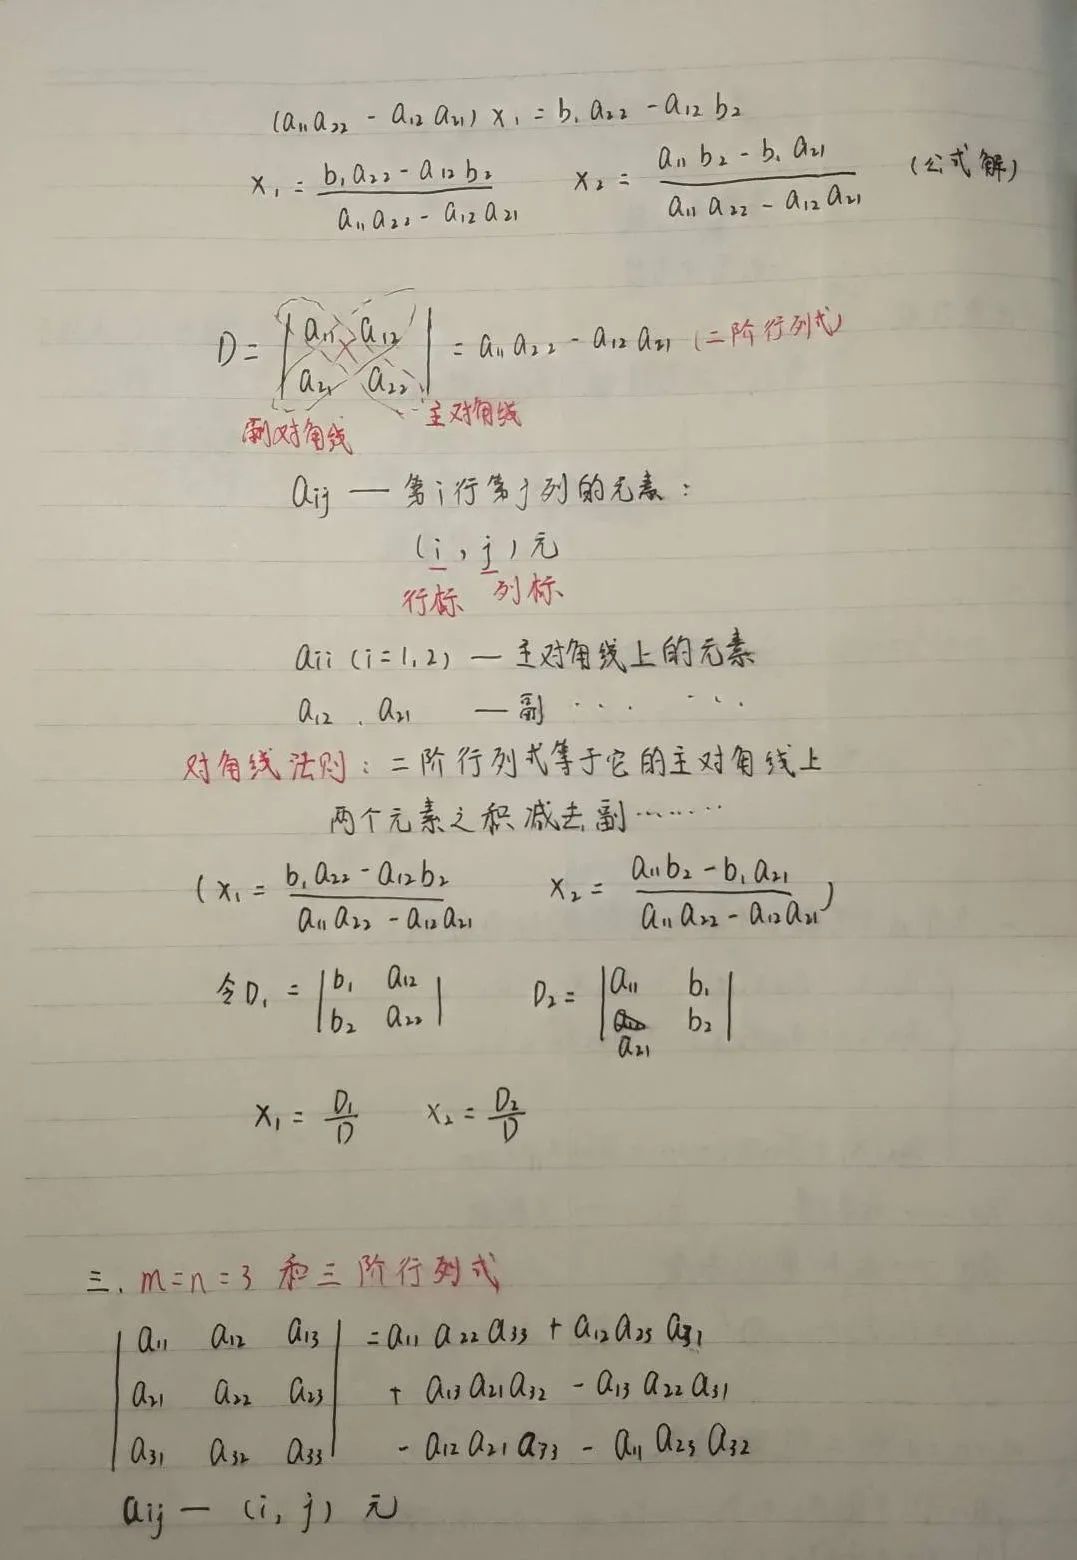 (a₁₁a₂₂ - a₁₂a₂₁) x₁ = b₁a₂₂ - a₁₂b₂
x₁ = (b₁a₂₂ - a₁₂b₂)/(a₁₁a₂₂ - a₁₂a₂₁) x₂ = (a₁₁b₂ - b₁a₂₁)/(a₁₁a₂₂ - a₁₂a₂₁) (公式解)
D = |a₁₁ a₁₂| = a₁₁a₂₂ - a₁₂a₂₁ (二阶行列式)
|a₂₁ a₂₂|
副对角线 主对角线
aij — 第i行第j列的元素:
(i, j)元
行标 列标
aii (i=1,2) — 主对角线上的元素
a₁₂、a₂₁ — 副 ... ...
对角线法则: 二阶行列式等于它的主对角线上
两个元素之积减去副……
(x₁ = (b₁a₂₂ - a₁₂b₂)/(a₁₁a₂₂ - a₁₂a₂₁) x₂ = (a₁₁b₂ - b₁a₂₁)/(a₁₁a₂₂ - a₁₂a₂₁))
令D₁ = |b₁ a₁₂| D₂ = |a₁₁ b₁|
|b₂ a₂₂| |a₂₁ b₂|
x₁ = D₁/D x₂ = D₂/D
三. m=n=3 和三阶行列式
|a₁₁ a₁₂ a₁₃| = a₁₁a₂₂a₃₃ + a₁₂a₂₃a₃₁
|a₂₁ a₂₂ a₂₃| + a₁₃a₂₁a₃₂ - a₁₃a₂₂a₃₁
|a₃₁ a₃₂ a₃₃| - a₁₂a₂₁a₃₃ - a₁₁a₂₃a₃₂
aij — (i, j) 元